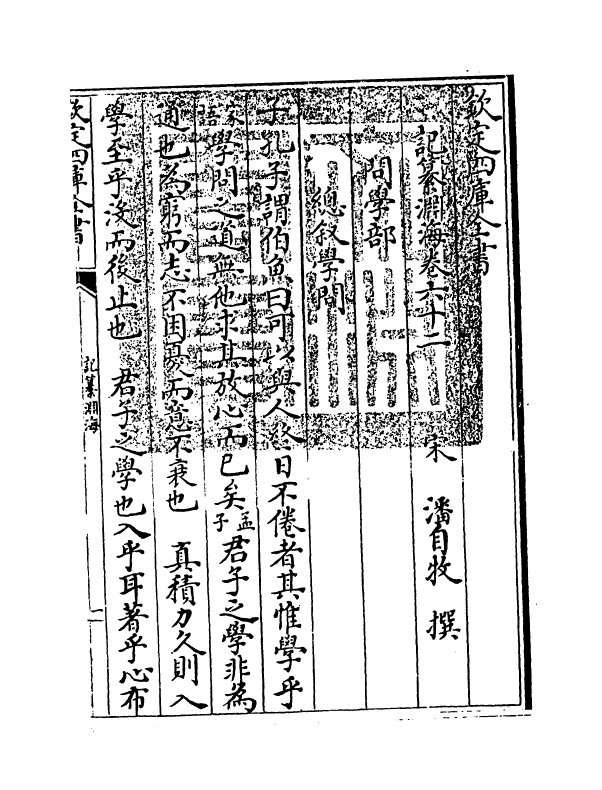 欽定四庫全書
記纂淵海卷六十二
宋 潘自牧 撰
問學部
總叙學問
子孔子謂伯魚曰可以與人終日不倦者其惟學乎
家語學問之道無他求其放心而已矣孟子君子之學非為
通也為窮而志不困憂而意不衰也 真積力久則入
學至乎沒而後止也 君子之學也入乎耳著乎心布
欽定四庫全書
記纂淵海
一